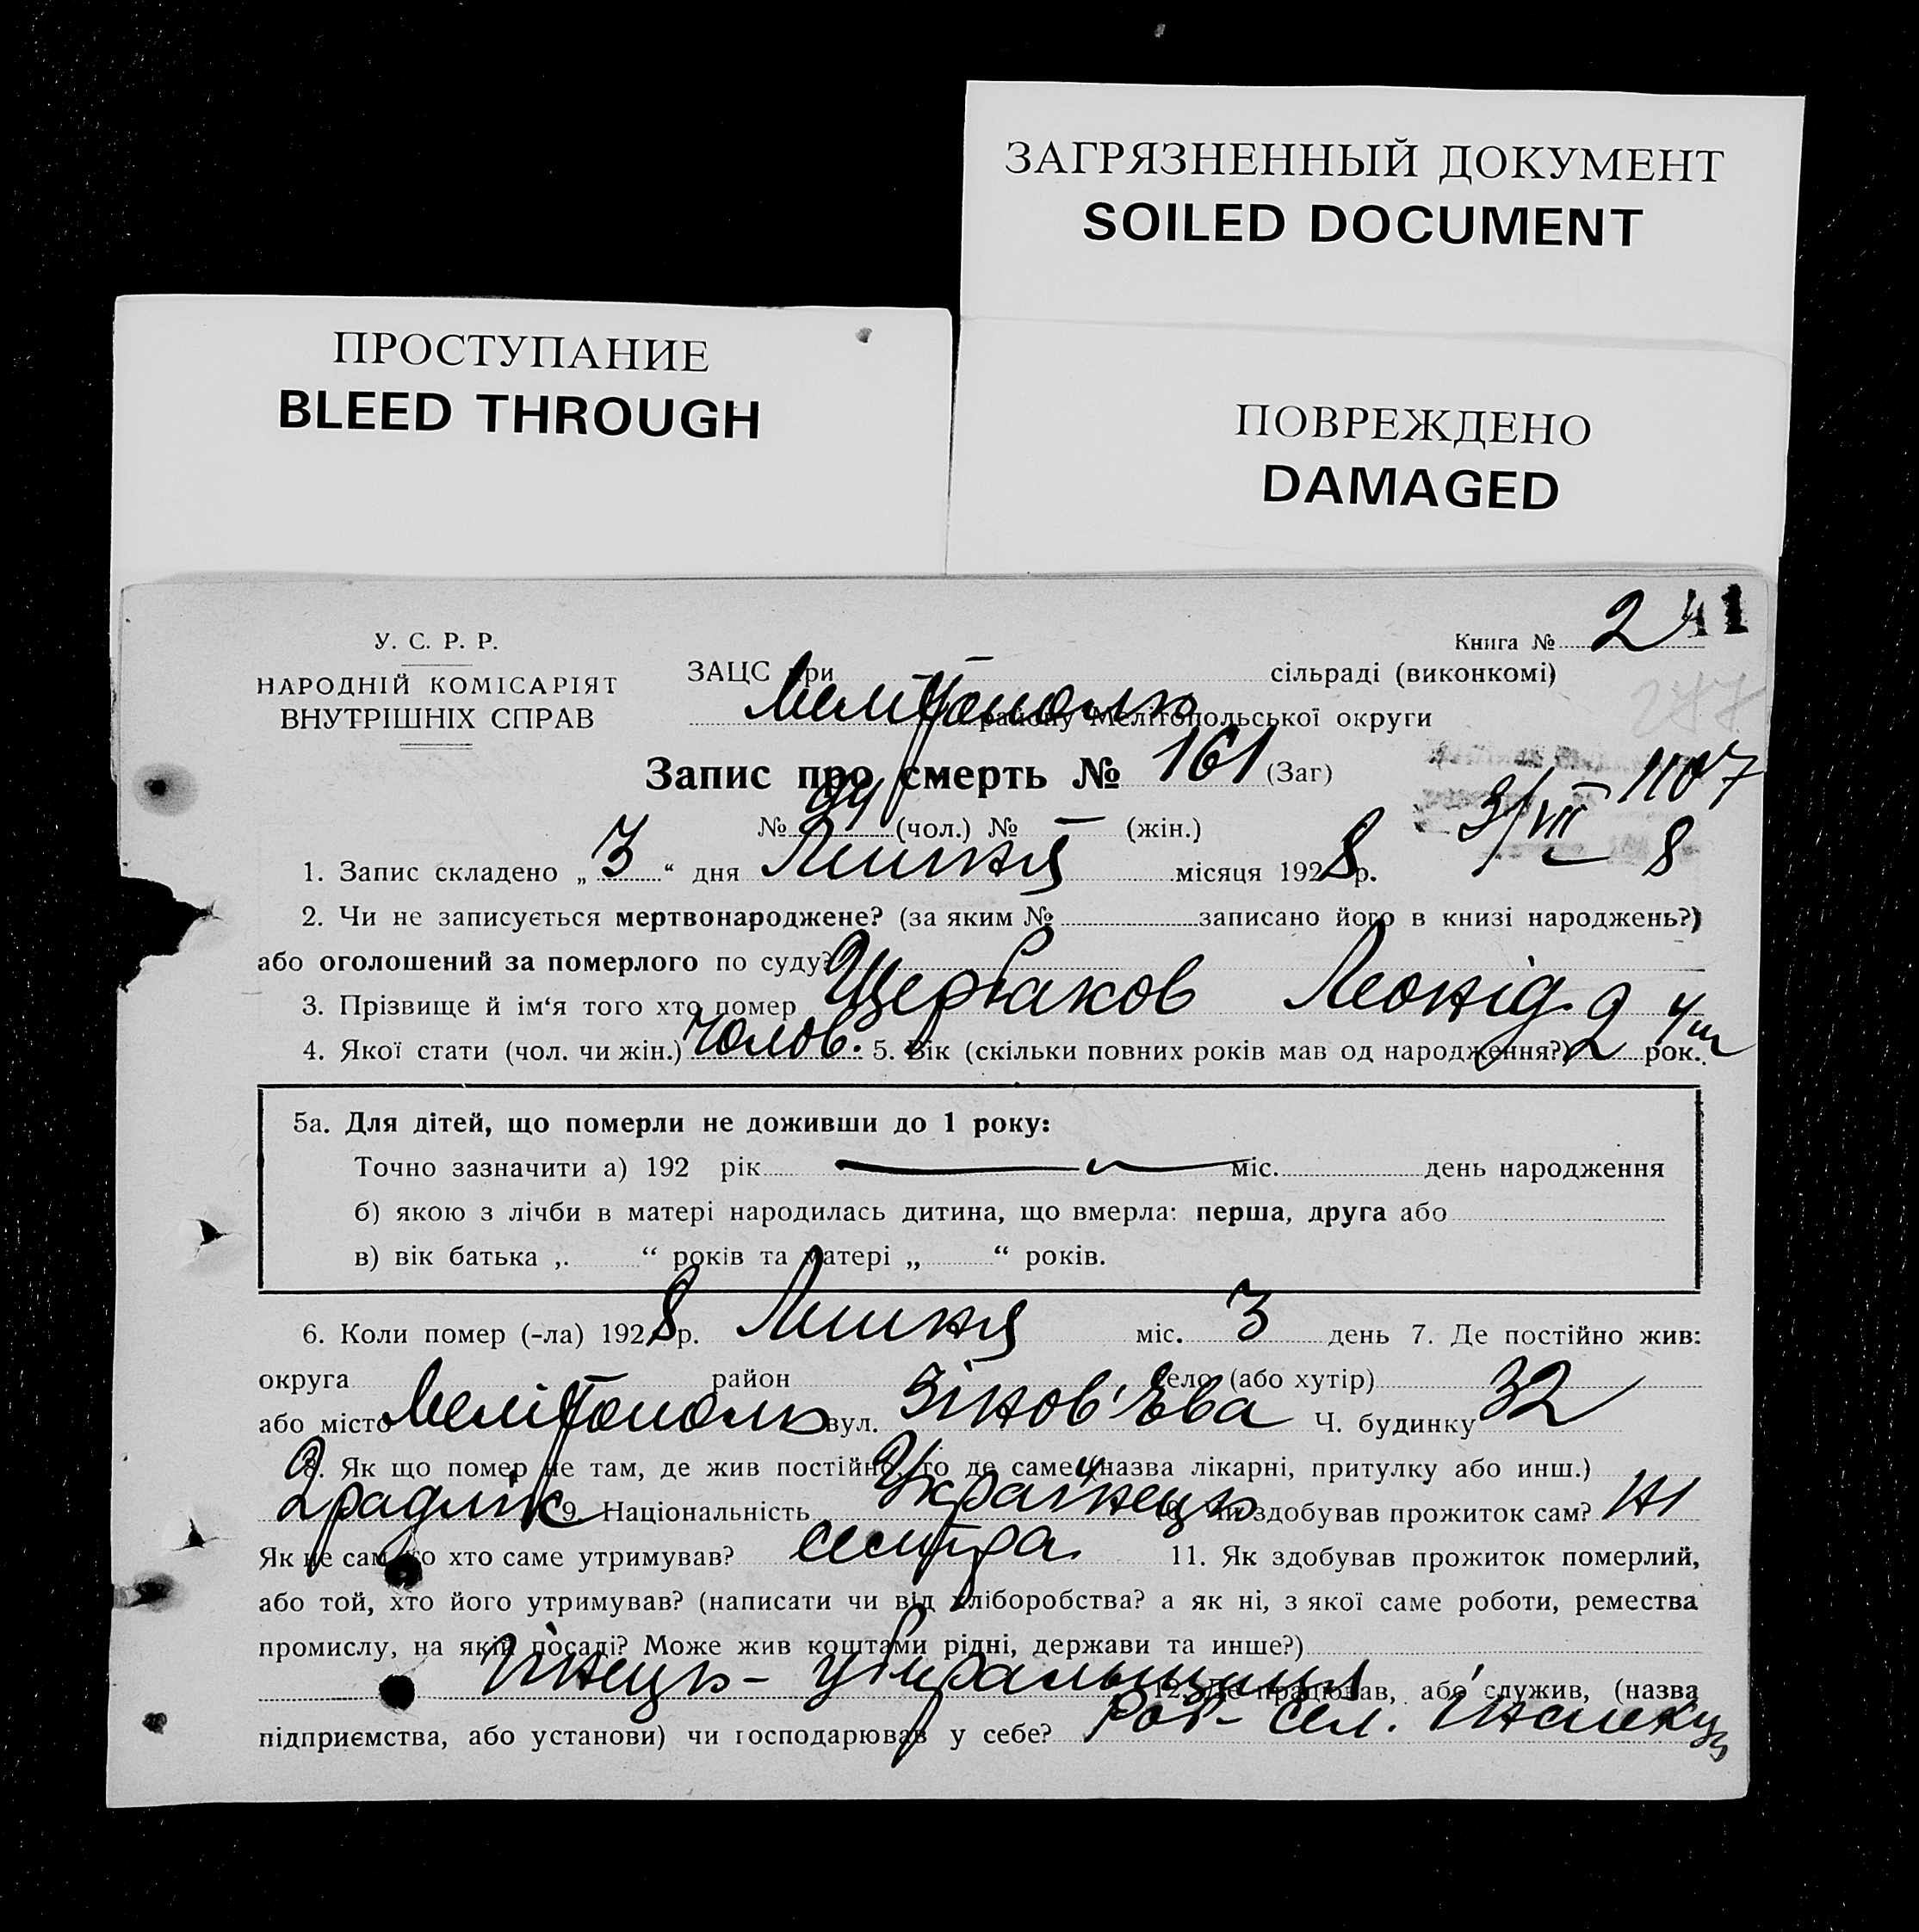 ЗАГРЯЗНЕННЫЙ ДОКУМЕНТ
SOILED DOCUMENT
ПРОСТУПАНИЕ
BLEED THROUGH
ПОВРЕЖДЕНО
DAMAGED
Книга № 2 41
247
У. С. Р. Р.
НАРОДНІЙ КОМІСАРІЯТ
ВНУТРІШНІХ СПРАВ
ЗАЦС при сільраді (виконкомі)
Мелітополь району Мелітопольської округи
Запис про смерть № 161 (Заг)
№ 94 (чол.) № — (жін.)
3/VII 1107
8
1. Запис складено „ 3 “ дня Липня місяця 1928 р.
2. Чи не записується мертвонароджене? (за яким № записано його в книзі народжень?)
або оголошений за померлого по суду?
3. Прізвище й ім‘я того хто помер Щербаков Леонід
4. Якої стати (чол. чи жін.) Чолов. 5. Вік (скільки повних років мав од народження?) 2 рок.
5а. Для дітей, що померли не доживши до 1 року:
Точно зазначити а) 192 рік — міс. день народження
б) якою з лічби в матері народилась дитина, що вмерла: перша, друга або
в) вік батька „ “ років та матері „ “ років.
6. Коли помер (-ла) 1928 р. Липня міс. 3 день 7. Де постійно жив:
округа район село (або хутір)
або місто Мелітополь вул. Зінов'єва Ч. будинку 32
8. Як що помер не там, де жив постійно, то де саме (назва лікарні, притулку або инш.)
9. Національність Українець 10. Чи здобував прожиток сам? Ні
Як не сам то хто саме утримував? сестра 11. Як здобував прожиток померлий,
або той, хто його утримував? (написати чи від хліборобства? а як ні, з якої саме роботи, ремества
промислу, на якій посаді? Може жив коштами рідні, держави та инше?)
12. Де працював, або служив, (назва
підприємства, або установи) чи господарював у себе? Роб- Сел. Інспекц